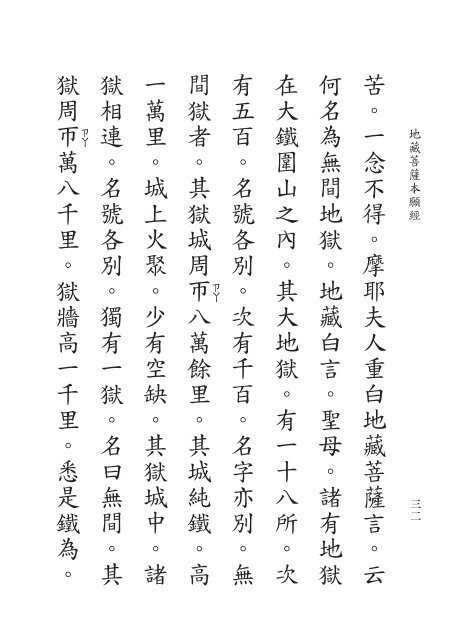 地藏菩薩本願經
三二
苦。一念不得。摩耶夫人重白地藏菩薩言。云
何名為無間地獄。地藏白言。聖母。諸有地獄
在大鐵圍山之內。其大地獄。有一十八所。次
有五百。名號各別。次有千百。名字亦別。無
間獄者。其獄城周帀ㄗㄚ八萬餘里。其城純鐵。高
一萬里。城上火聚。少有空缺。其獄城中。諸
獄相連。名號各別。獨有一獄。名曰無間。其
獄周帀ㄗㄚ萬八千里。獄牆高一千里。悉是鐵為。